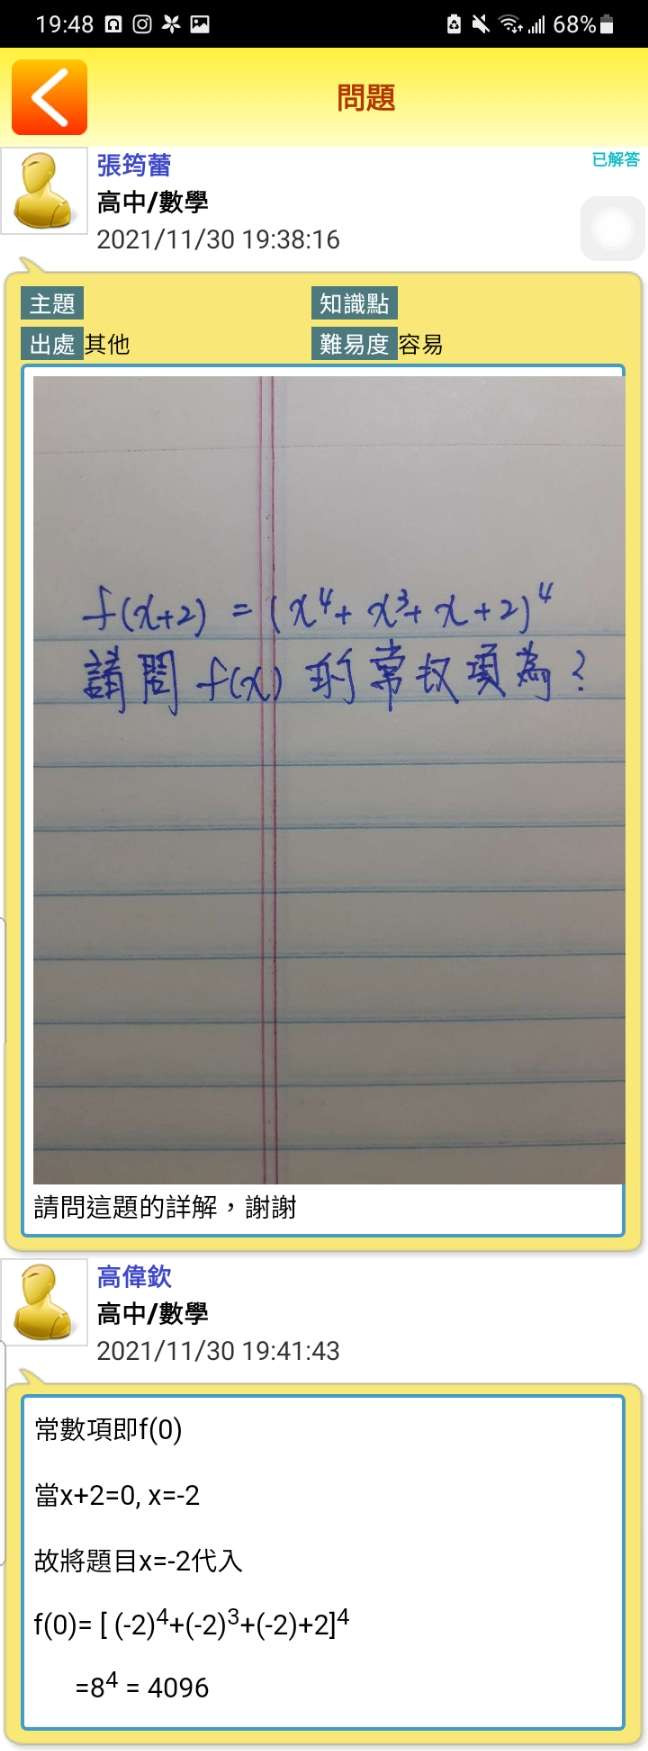 19:48 68%
問題
張筠蕾
已解答
高中/數學
2021/11/30 19:38:16
主題 知識點
出處 其他 難易度 容易
f(x+2) = (x⁴+ x³+ x+2)⁴
請問 f(x) 的常数項為?
請問這題的詳解，謝謝
高偉欽
高中/數學
2021/11/30 19:41:43
常數項即f(0)
當x+2=0, x=-2
故將題目x=-2代入
f(0)= [ (-2)⁴+(-2)³+(-2)+2]⁴
=8⁴ = 4096